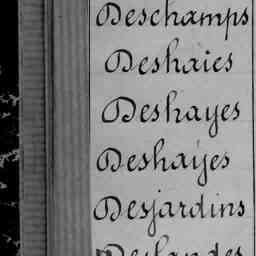 Deschamps
Deshaies
Deshayes
Deshaÿes
Desjardins
Deslandes